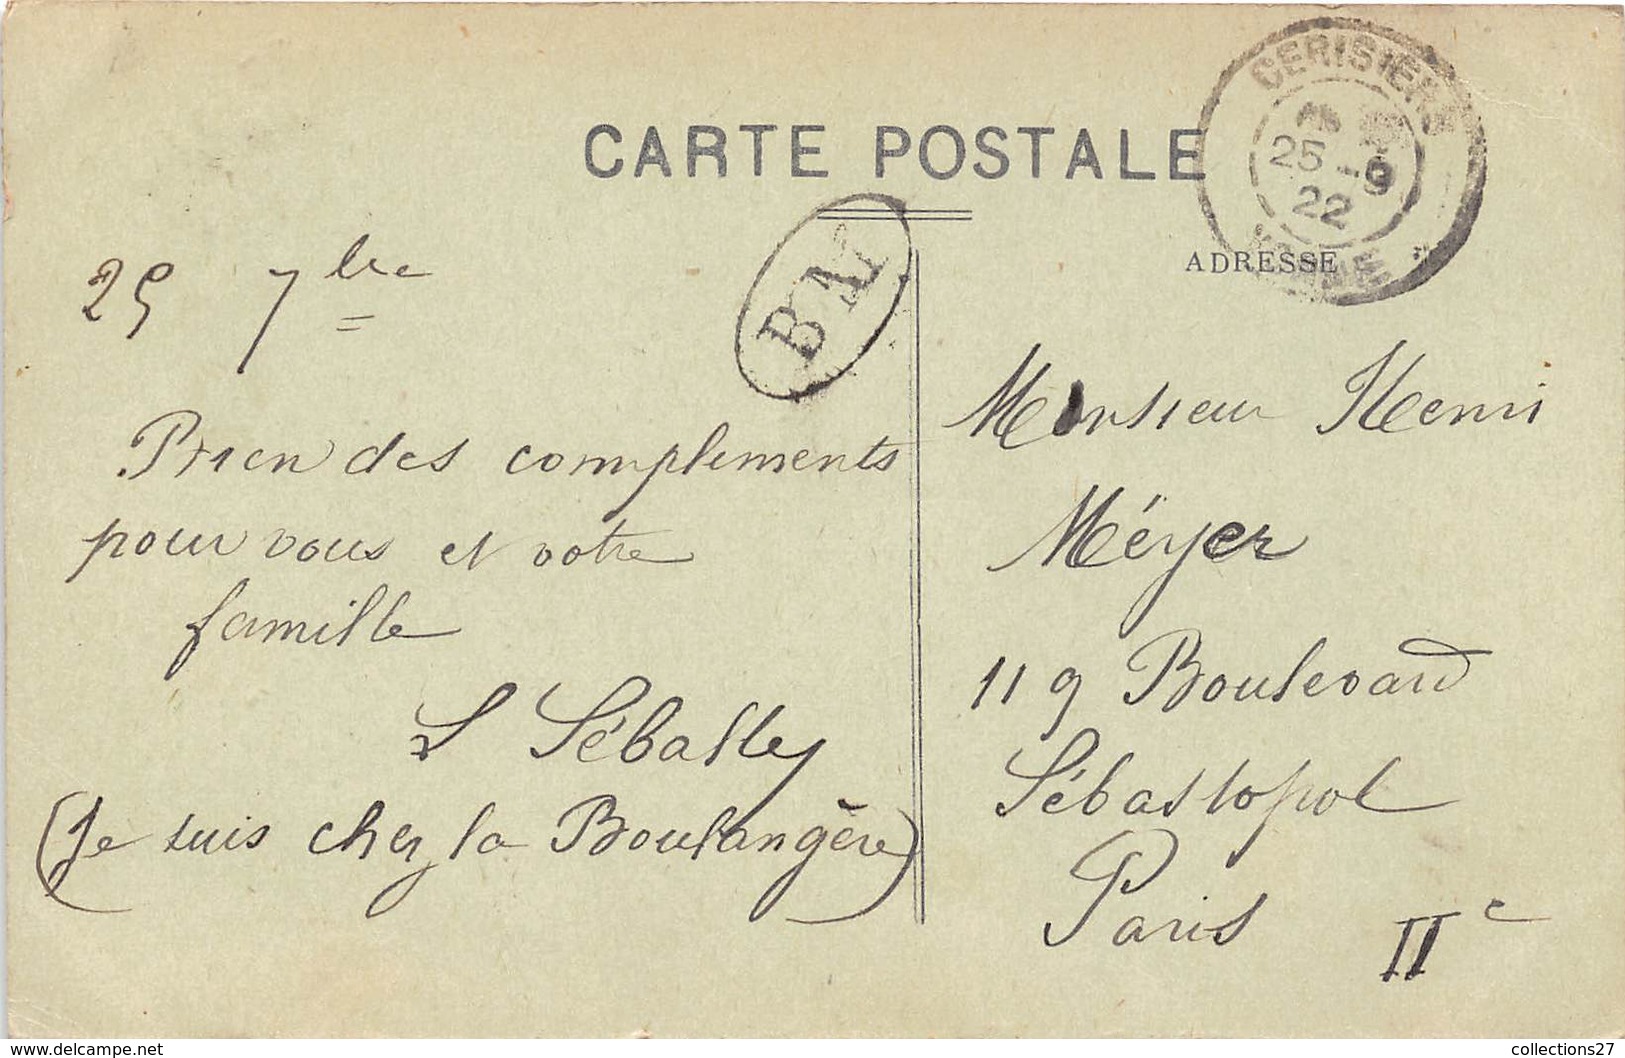 CARTE POSTALE
CERISIERS
25 -9
22
YONNE
ADRESSE
BM
25 7bre
Bien des compliments
pour vous et votre
famille
L Sébastley
(Je suis chez la Boulangère)
Monsieur Henri
Méyer
119 Boulevard
Sébastopol
Paris IIe
www.delcampe.net
collections27